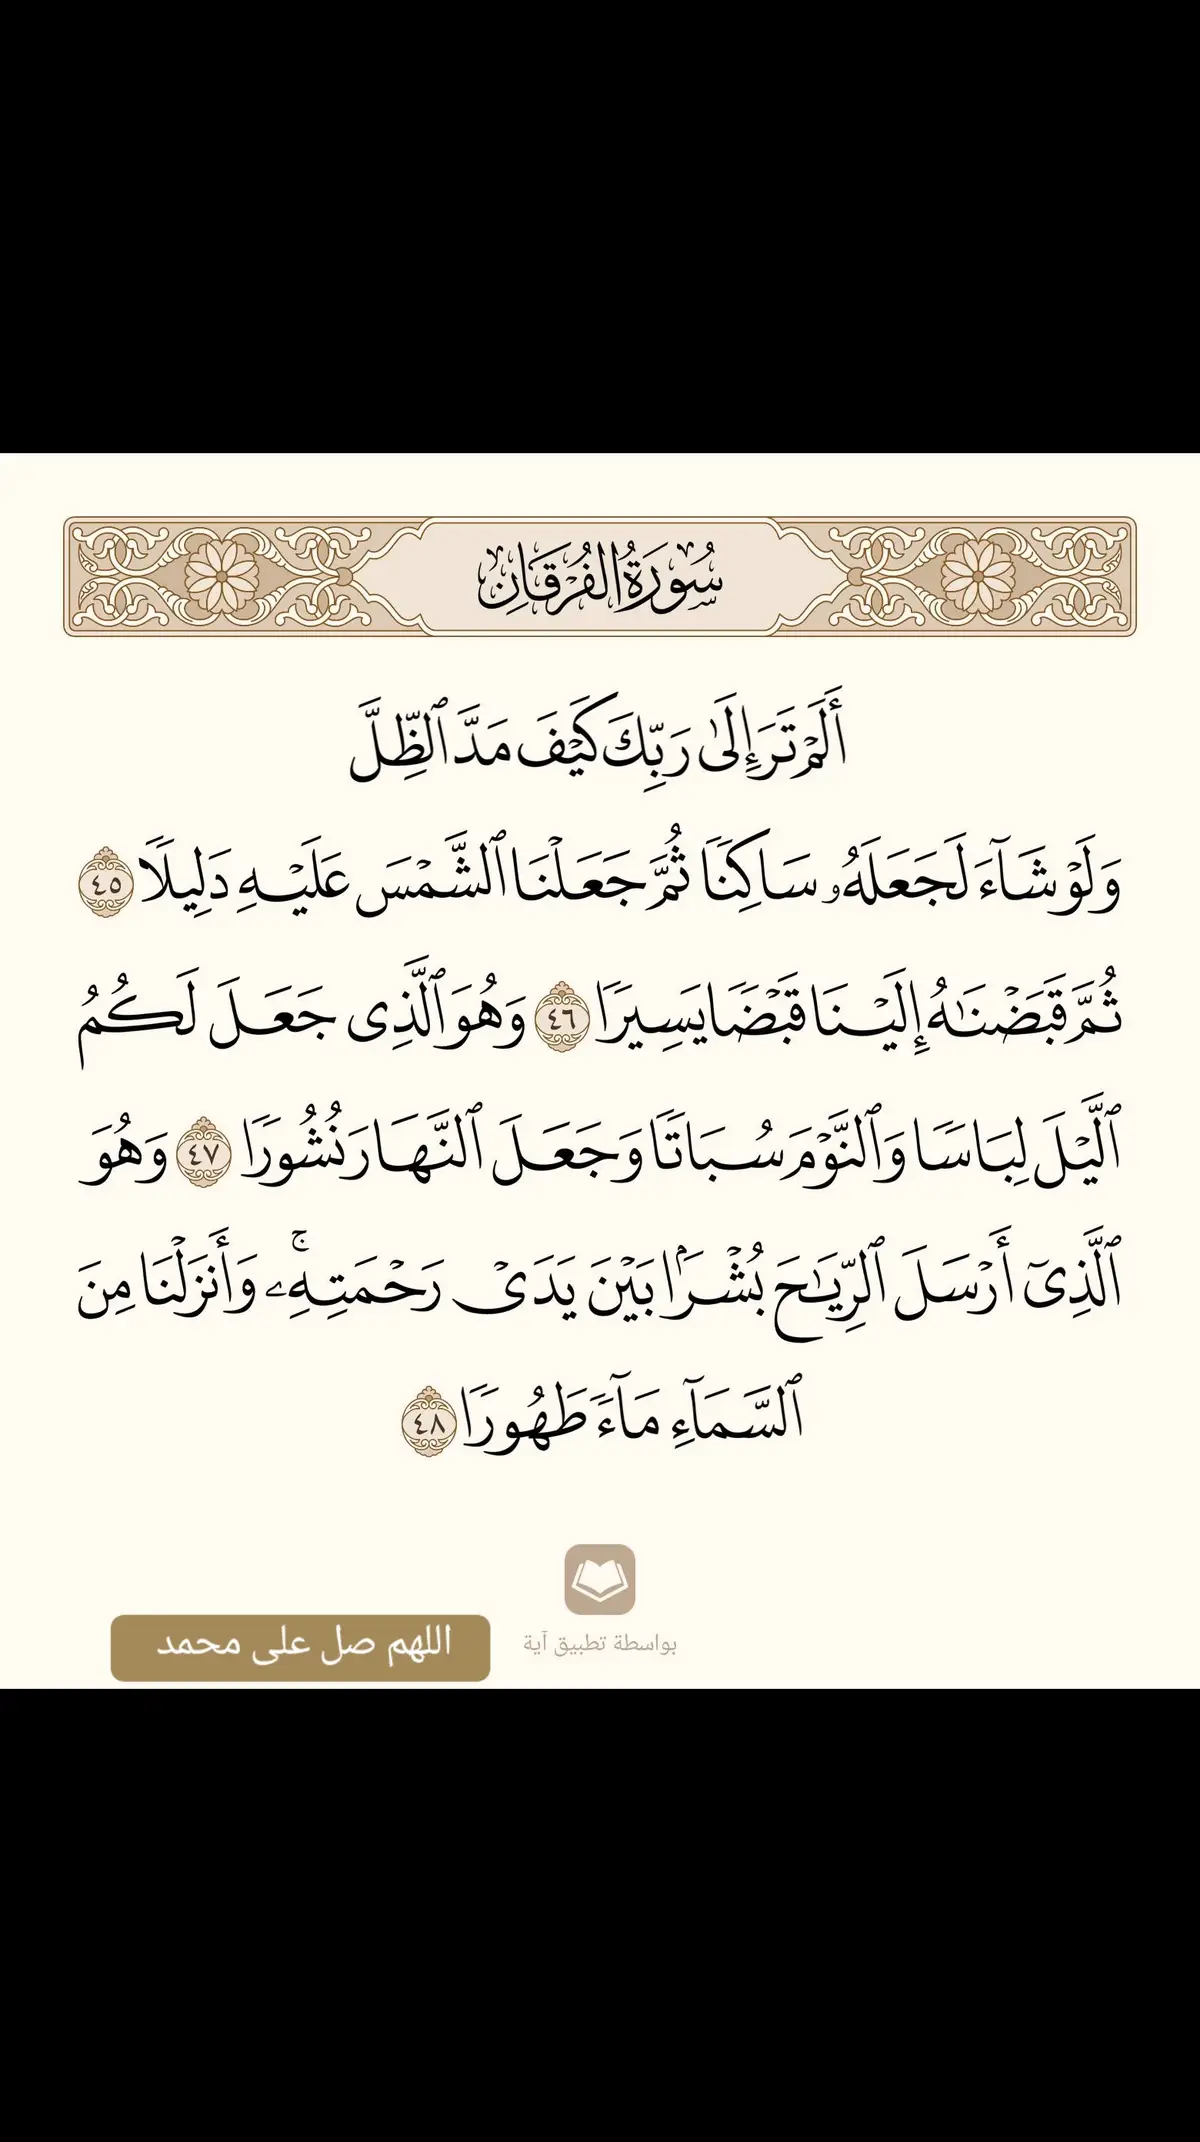 سُورَةُ الفُرْقَانِ
أَلَمْ تَرَ إِلَىٰ رَبِّكَ كَيْفَ مَدَّ ٱلظِّلَّ
وَلَوْ شَآءَ لَجَعَلَهُۥ سَاكِنًا ثُمَّ جَعَلْنَا ٱلشَّمْسَ عَلَيْهِ دَلِيلًا ٤٥
ثُمَّ قَبَضْنَٰهُ إِلَيْنَا قَبْضًا يَسِيرًا ٤٦ وَهُوَ ٱلَّذِى جَعَلَ لَكُمُ
ٱلَّيْلَ لِبَاسًا وَٱلنَّوْمَ سُبَاتًا وَجَعَلَ ٱلنَّهَارَ نُشُورًا ٤٧ وَهُوَ
ٱلَّذِىٓ أَرْسَلَ ٱلرِّيَٰحَ بُشْرًۢا بَيْنَ يَدَىْ رَحْمَتِهِۦ ۚ وَأَنزَلْنَا مِنَ
ٱلسَّمَآءِ مَآءً طَهُورًا ٤٨
بواسطة تطبيق آية
اللهم صل على محمد